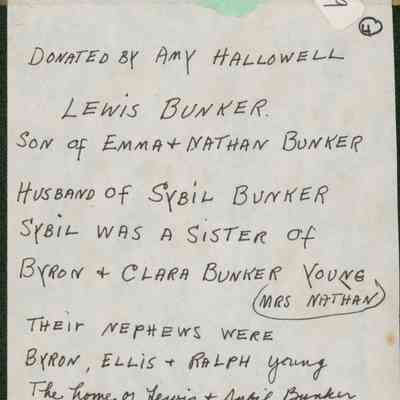 4
DONATED BY AMY HALLOWELL
LEWIS BUNKER.
SON of EMMA + NATHAN BUNKER
HUSBAND OF SYBIL BUNKER
SYBIL WAS A SISTER Of
BYRON + CLARA BUNKER YOUNG
MRS NATHAN
THEIR NEPHEWS WERE
BYRON, ELLIS + RALPH YOUNG
The home of Lewis + Sybil Bunker